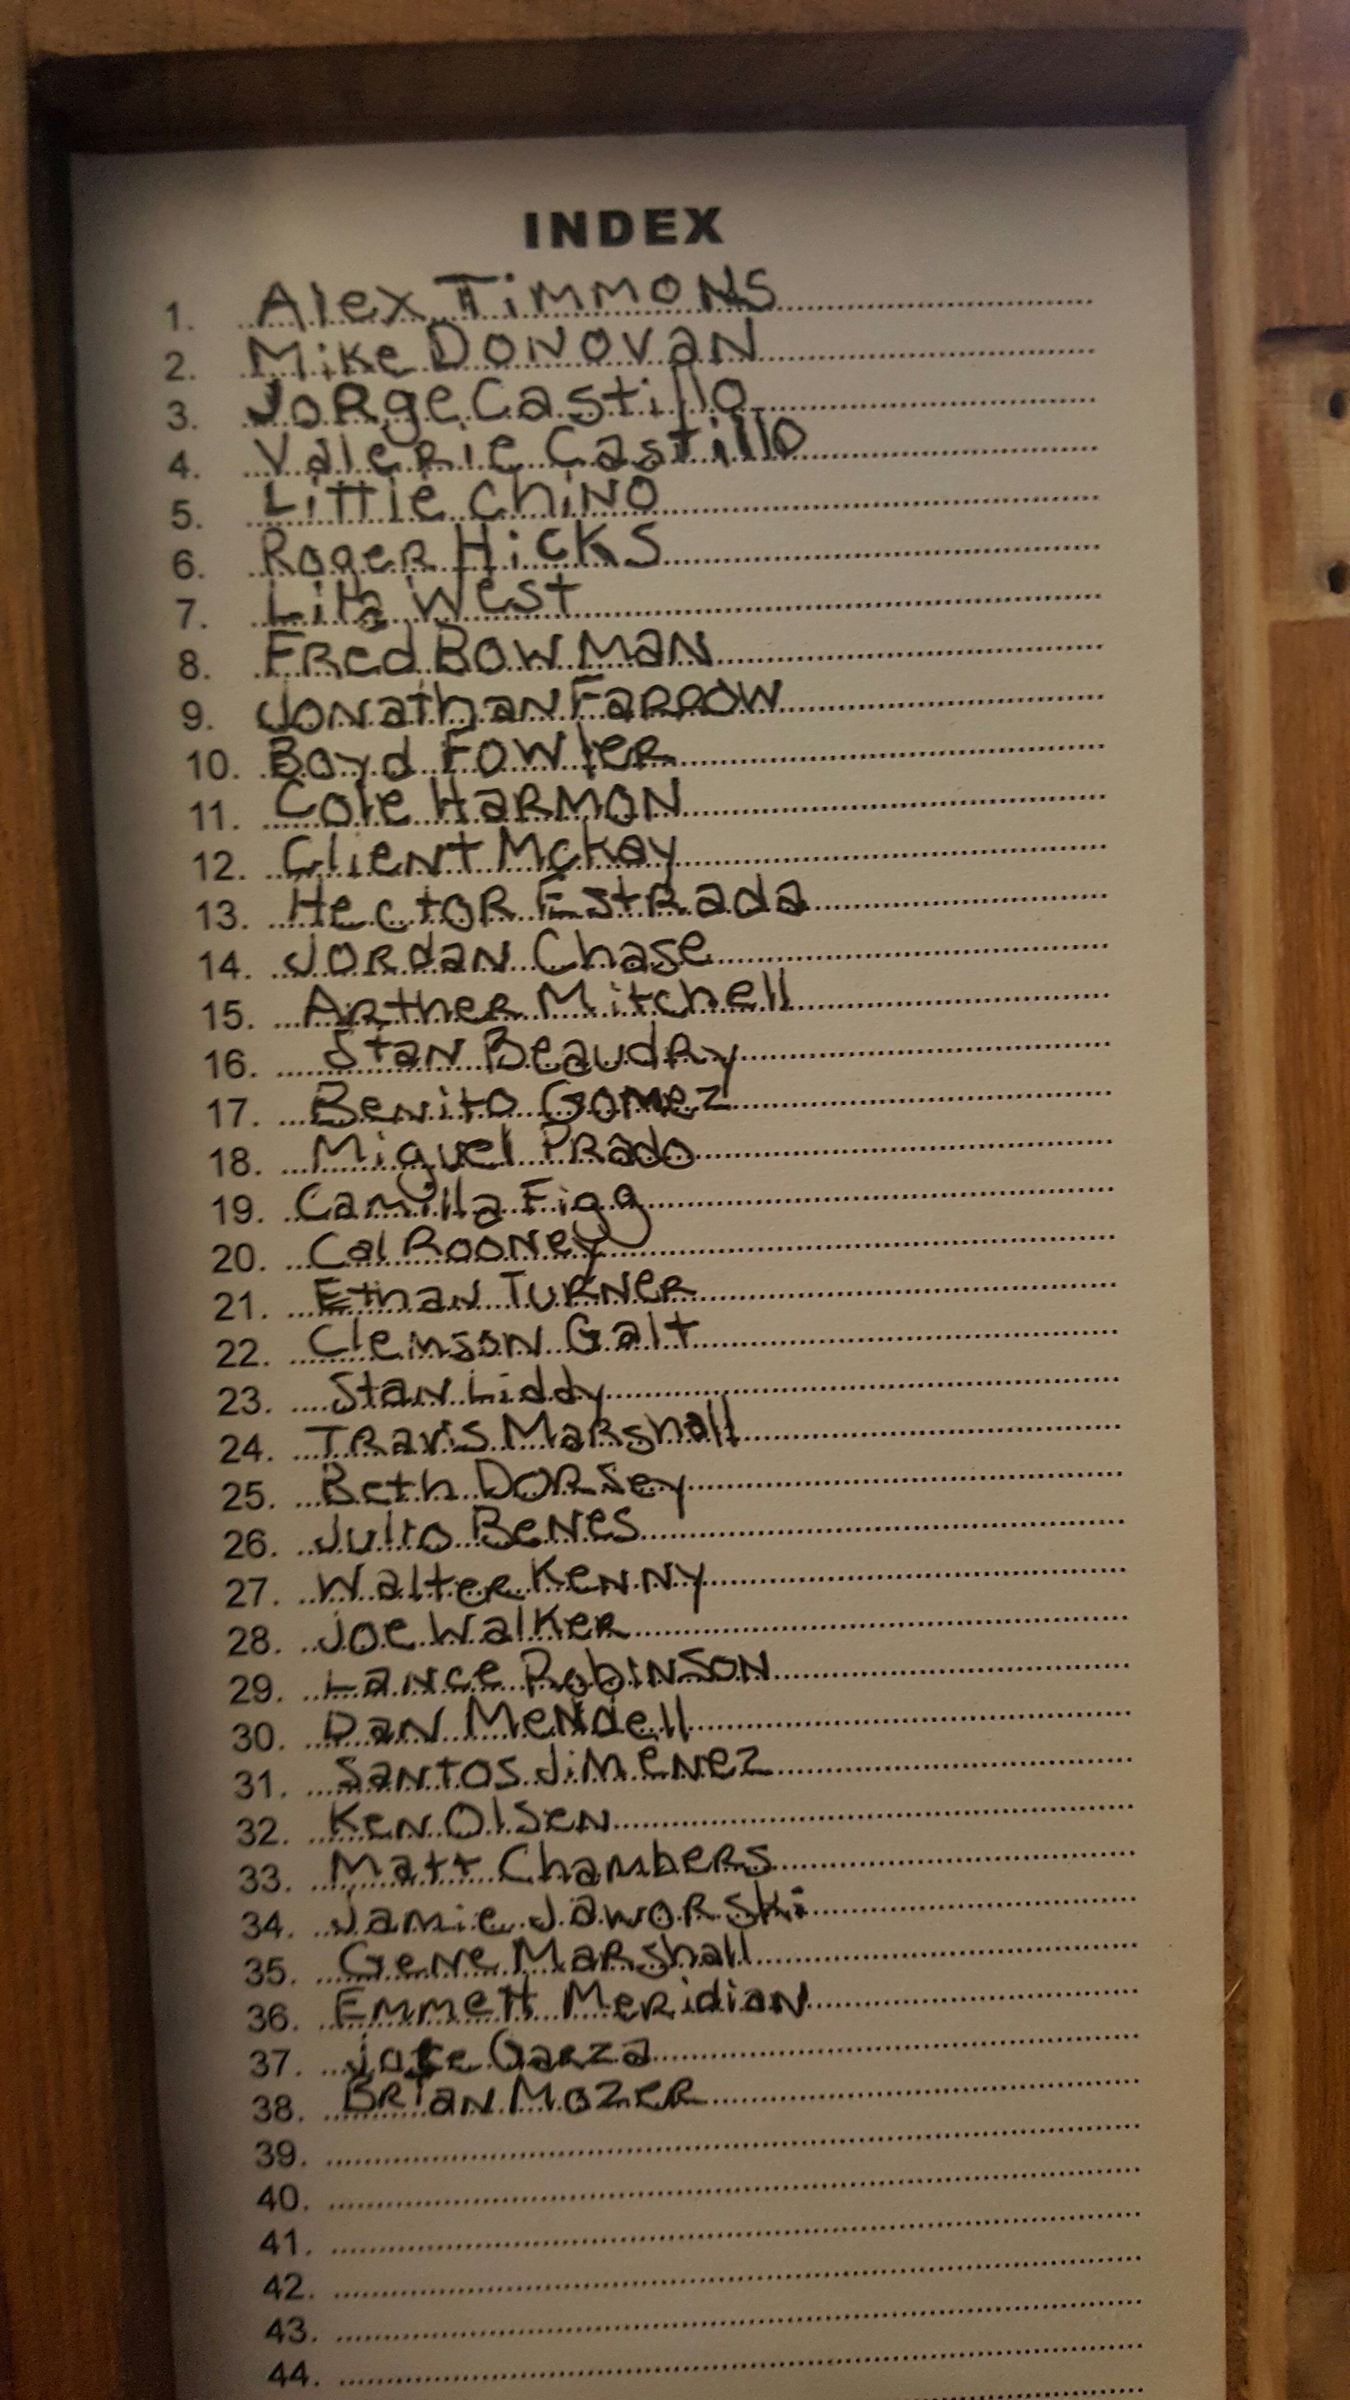 INDEX
1. Alex Timmons
2. Mike Donovan
3. Jorge Castillo
4. Valerie Castillo
5. Little Chino
6. Roger Hicks
7. West
8. Fred Bowman
9. Jonathan Farrow
10. Boyd Fowler
11. Cole Harmon
12. Client Mckay
13. Hector Estrada
14. Jordan Chase
15. Arther Mitchell
16. Stan Beaudry
17. Benito Gomez
18. Miguel Prado
19. Camilla Figg
20. Cal Rooney
21. Ethan Turner
22. Clemson Galt
23. Stan Liddy
24. Travis Marshall
25. Beth Dorsey
26. Julio Benes
27. Walter Kenny
28. Joe Walker
29. Lance Robinson
30. Dan Mendell
31. Santos Jimenez
32. Ken Olsen
33. Matt Chambers
34. Jamie Jaworski
35. Gene Marshall
36. Emmett Meridian
37. Jose Garza
38. Brian Mozer
39.
40.
41.
42.
43.
44.